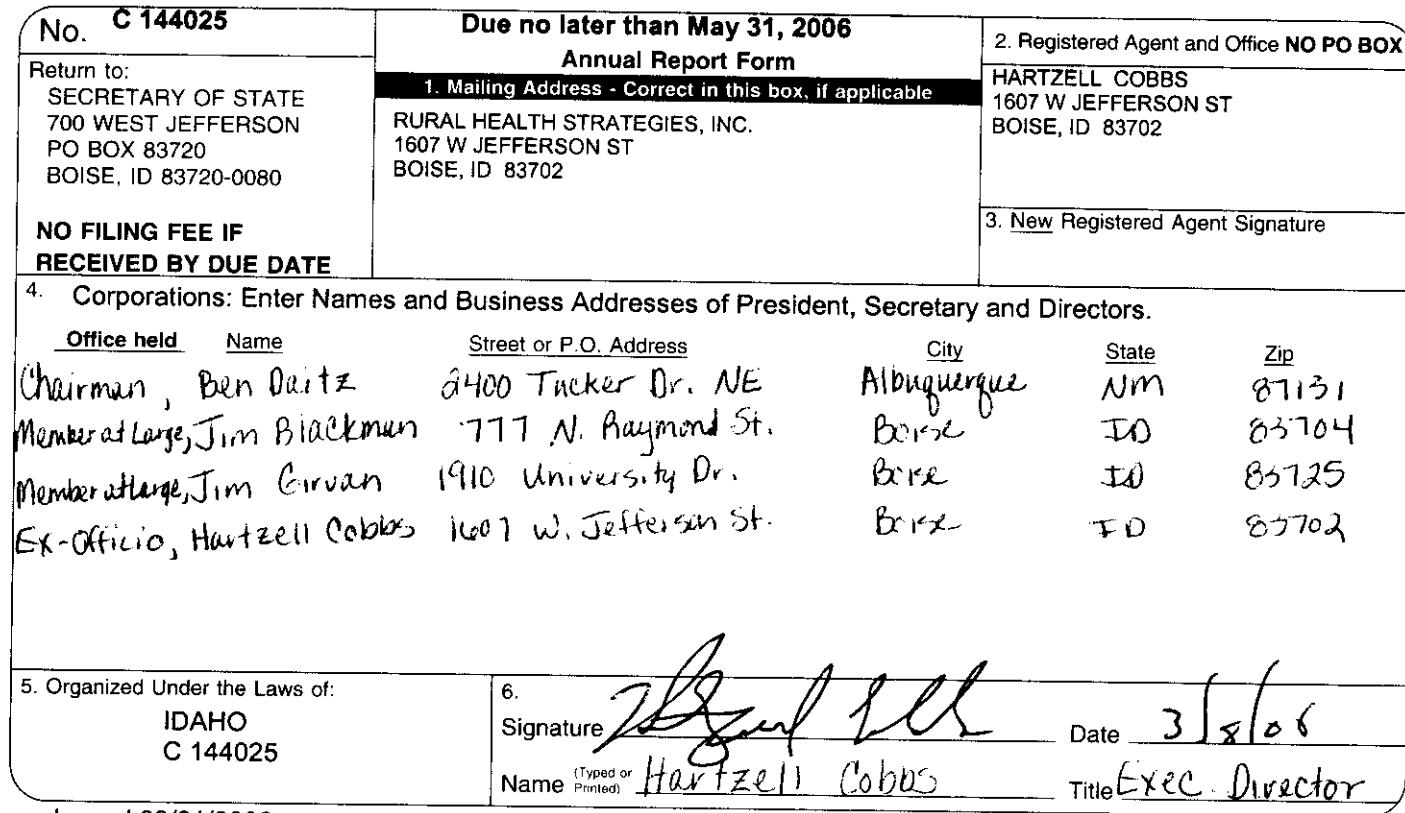 No. C 144025
Return to:
SECRETARY OF STATE
700 WEST JEFFERSON
PO BOX 83720
BOISE, ID 83720-0080
NO FILING FEE IF
RECEIVED BY DUE DATE
Due no later than May 31, 2006
Annual Report Form
1. Mailing Address - Correct in this box, if applicable
RURAL HEALTH STRATEGIES, INC.
1607 W JEFFERSON ST
BOISE, ID 83702
2. Registered Agent and Office NO PO BOX
HARTZELL COBBS
1607 W JEFFERSON ST
BOISE, ID 83702
3. New Registered Agent Signature
4. Corporations: Enter Names and Business Addresses of President, Secretary and Directors.
Office held Name Street or P.O. Address City State Zip
Chairman, Ben Daitz 2400 Tucker Dr. NE Albuquerque NM 87131
Member at Large, Jim Blackman 777 N. Raymond St. Boise ID 83704
Member at Large, Jim Girvan 1910 University Dr. Boise ID 83725
Ex-Officio, Hartzell Cobbs 1607 W. Jefferson St. Boise ID 83702
5. Organized Under the Laws of:
IDAHO
C 144025
6.
Signature Date 3/8/06
Name (Typed or Printed) Hartzell Cobbs Title Exec. Director